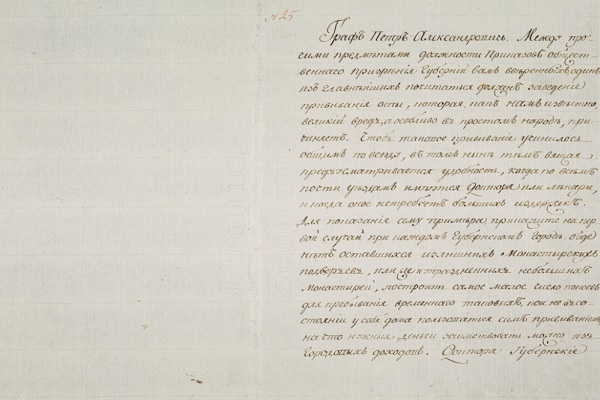 № 25
Графъ Петръ Александровичь. Между про-
сими предмѣтами должности Приказовъ общест-
веннаго призрѣнія Губерній вамъ ввѣренныхъ, одинъ
изъ главнѣйшихъ почитаться долженъ заведеніе
прививанія оспы, которая, какъ намъ извѣстно,
великій вредъ, а особливо въ простомъ народѣ, при-
чиняетъ. Чтобъ таковое прививаніе учинилось
общимъ повсюду, въ томъ нынѣ тѣмъ вящая
предъусматривается удобность, когда по всѣмъ
почти уѣздамъ имѣются Доктора или лѣкари,
и когда оное не требуетъ большихъ издержекъ.
Для показанія сему примѣра, прикажите на пер-
вой случай при каждомъ Губернскомъ Городѣ, буде
нѣтъ оставшихся излишнихъ Монастырскихъ
подворьевъ, или не изпраздненныхъ небольшихъ
Монастырей, построить самое малое число покоевъ
для пребыванія временнаго таковыхъ, кои не въ со-
стояніи у себя дома пользоваться симъ прививаніемъ,
на что нужныя деньги заимствовать можно изъ
Городскихъ доходовъ. Доктора Губернскіе